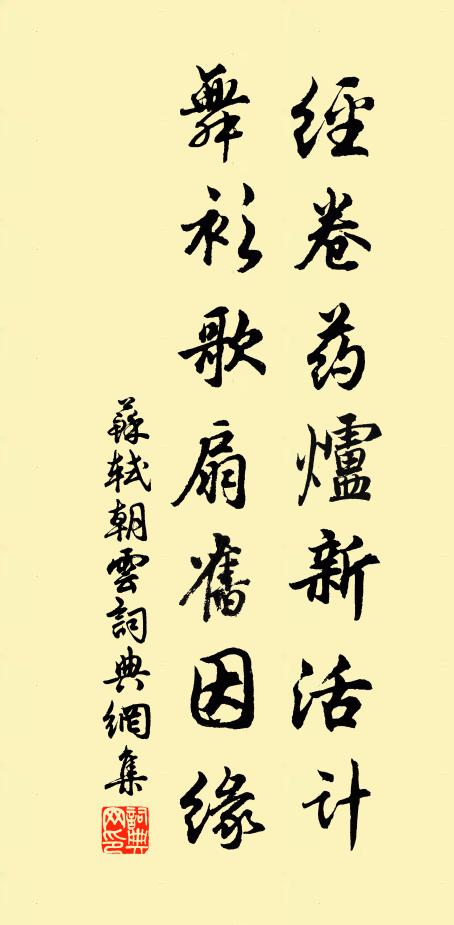 經卷药爐新活計
舞衫歌扇舊因緣
蘇軾朝雲詞典網集
詞典網印